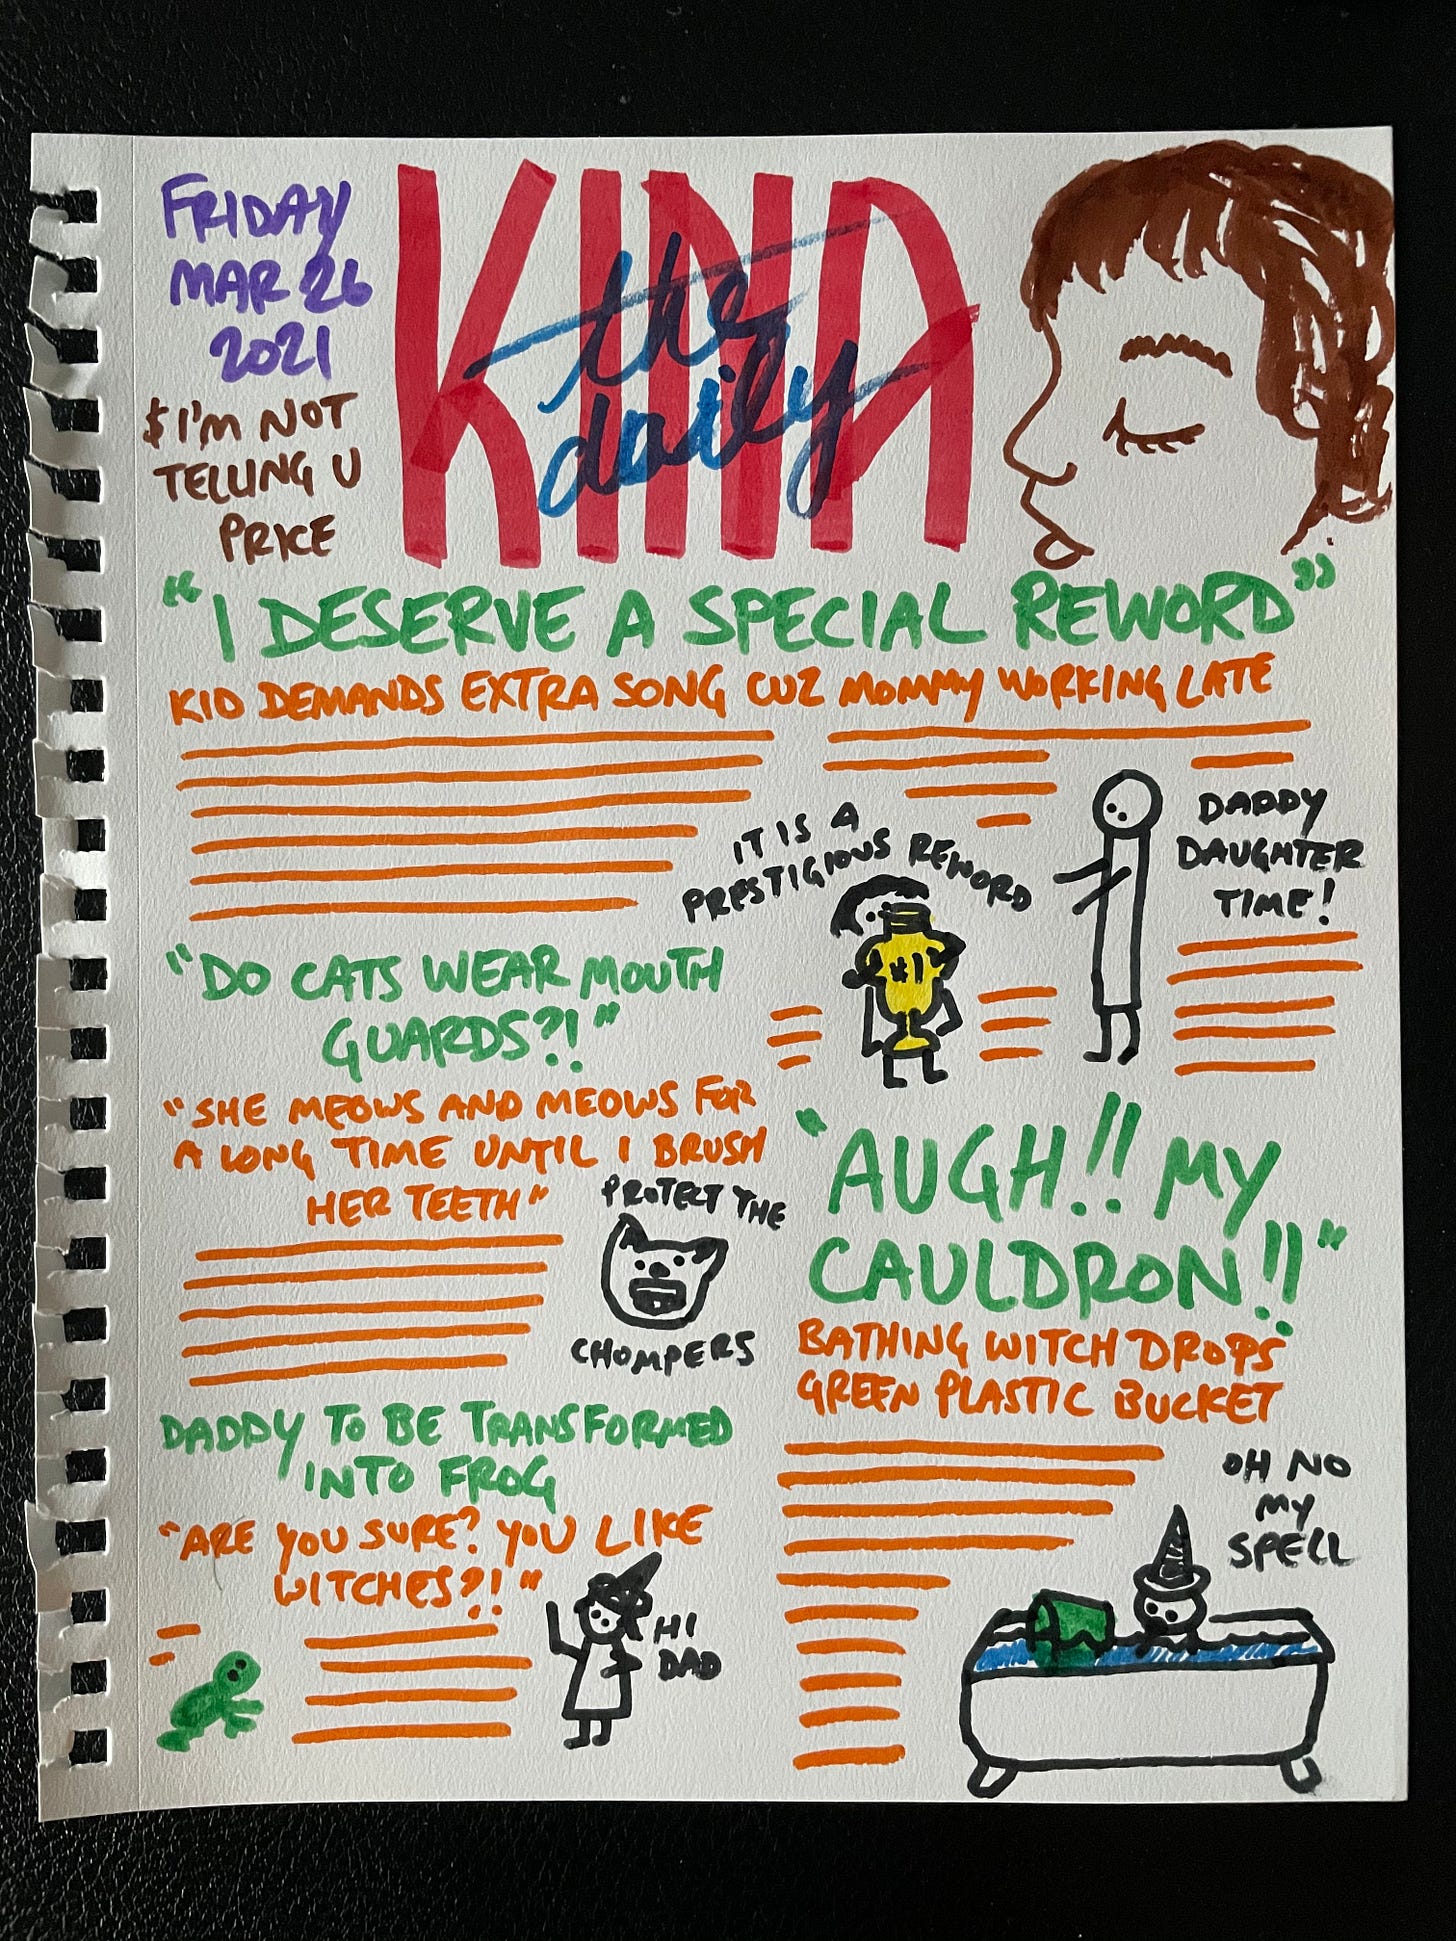 FRIDAY
MAR 26
2021
$ I'M NOT
TELLING U
PRICE
the
daily
KINA
"I DESERVE A SPECIAL REWORD"
KID DEMANDS EXTRA SONG CUZ MOMMY WORKING LATE
IT IS A
PRESTIGIOUS REWORD
#1
DADDY
DAUGHTER
TIME!
"DO CATS WEAR MOUTH
GUARDS?!"
"SHE MEOWS AND MEOWS FOR
A LONG TIME UNTIL I BRUSH
HER TEETH"
PROTECT THE
CHOMPERS
"AUGH!! MY
CAULDRON!!"
BATHING WITCH DROPS
GREEN PLASTIC BUCKET
OH NO
MY
SPELL
DADDY TO BE TRANSFORMED
INTO FROG
"ARE YOU SURE? YOU LIKE
WITCHES?!"
HI
DAD